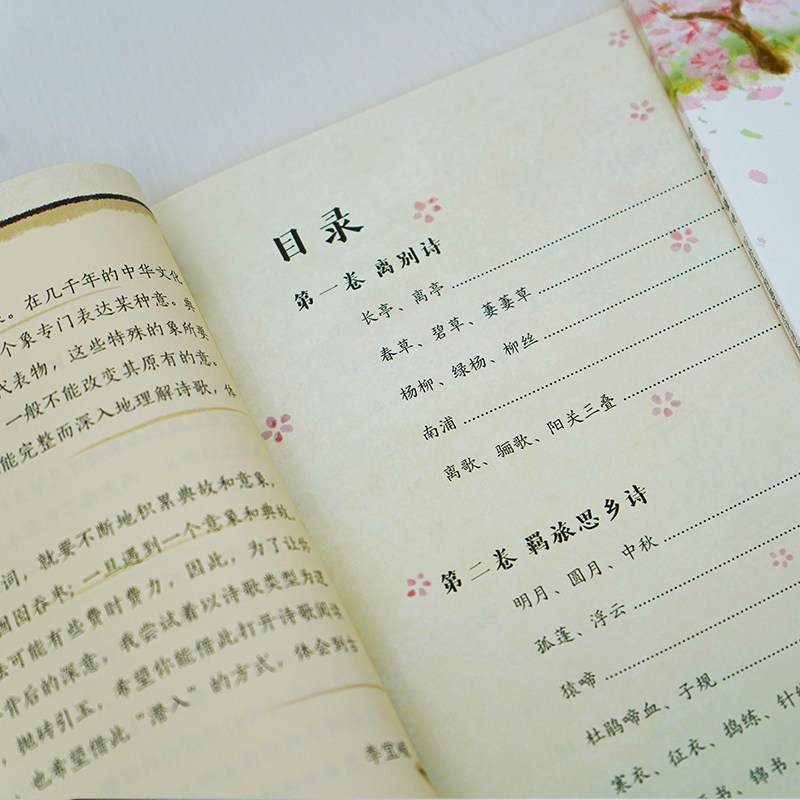 。在几千年的中华文化
个象专门表达某种意。典
代表物，这些特殊的象所要
一般不能改变其原有的意。
能完整而深入地理解诗歌，体
词，就要不断地积累典故和意象，
囫囵吞枣；一旦遇到一个意象和典故，
可能有些费时费力，因此，为了让你
背后的深意，我尝试着以诗歌类型为逻
抛砖引玉，希望你能借此打开诗歌阅读
，也希望借此“潜入”的方式，体会到古
李宜
目录
第一卷 离别诗
长亭、离亭
春草、碧草、萋萋草
杨柳、绿杨、柳丝
南浦
离歌、骊歌、阳关三叠
第二卷 羁旅思乡诗
明月、圆月、中秋
孤蓬、浮云
猿啼
杜鹃啼血、子规
寒衣、征衣、捣练、针
书、锦书、